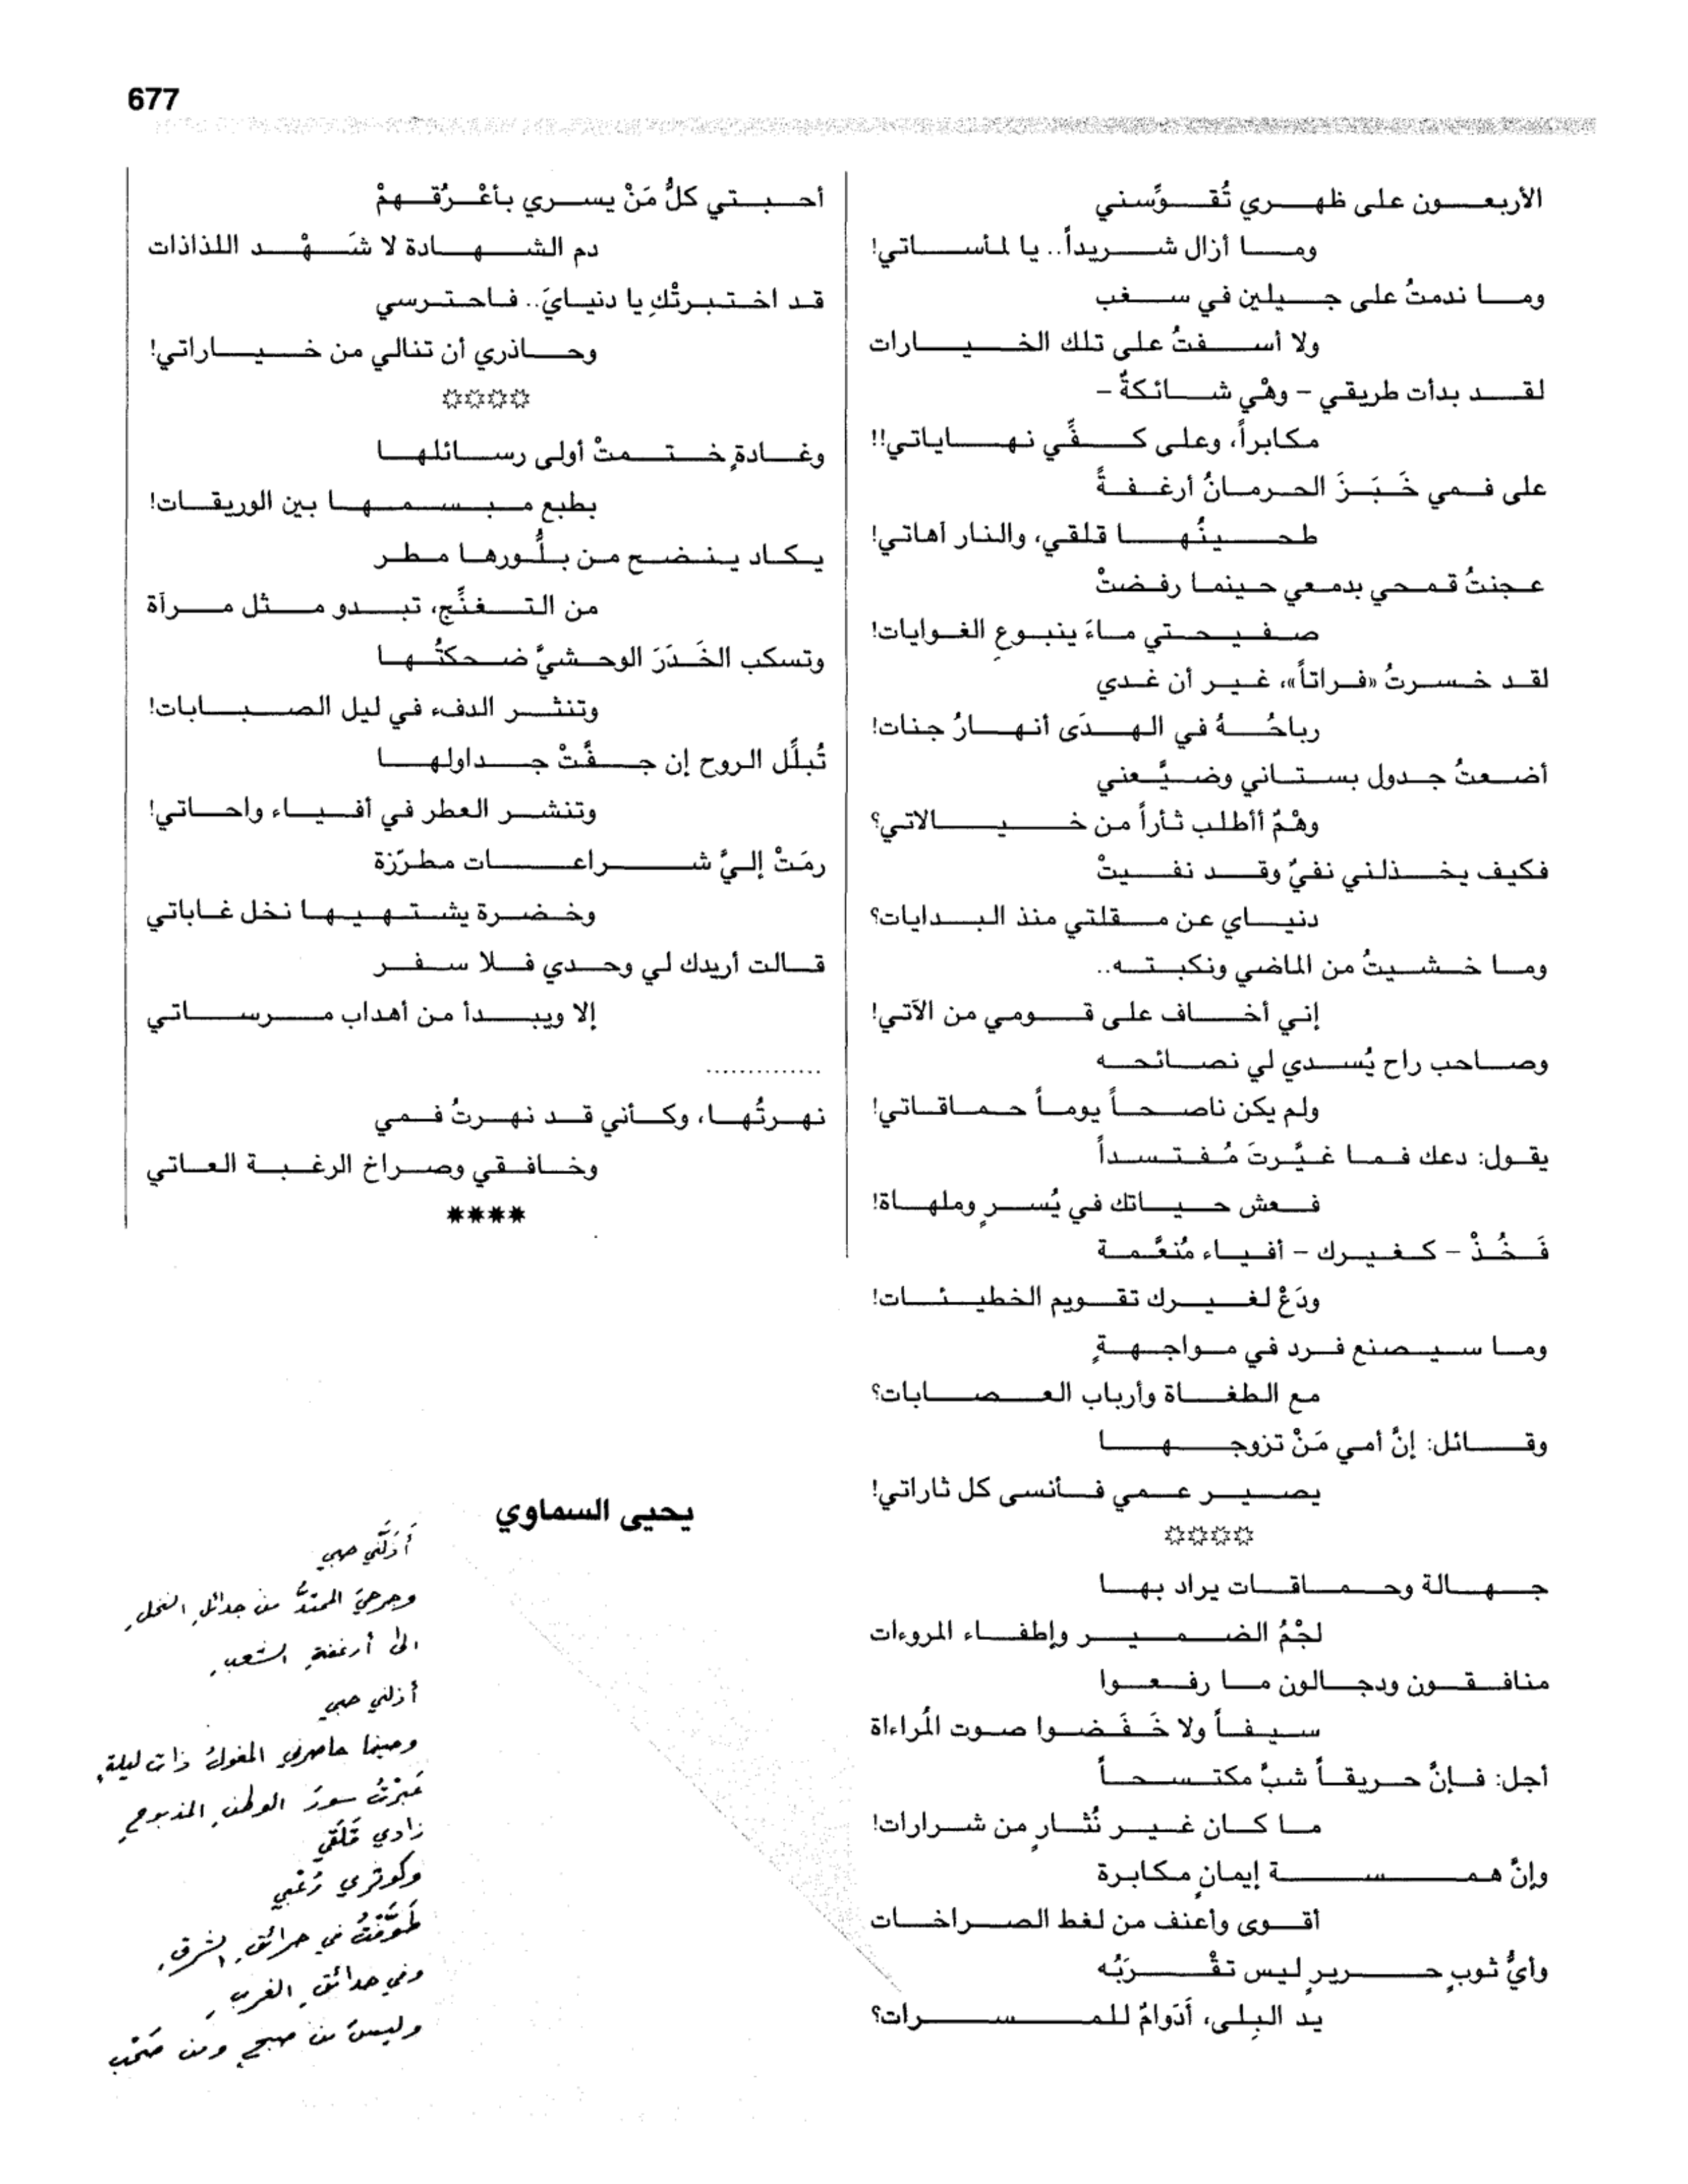 677
الأربعون على ظهري تُقوِّسني
وما أزال شريداً.. يا لمأساتي!
وما ندمتُ على جيلين في سغب
ولا أسفتُ على تلك الخيارات
لقد بدأت طريقي – وهْي شائكةٌ –
مكابراً، وعلى كفِّي نهاياتي!!
على فمي خَبَزَ الحرمانُ أرغفةً
طحينُها قلقي، والنار آهاتي!
عجنتُ قمحي بدمعي حينما رفضتْ
صفيحتي ماءَ ينبوعِ الغوايات!
لقد خسرتُ «فراتاً»، غير أن غدي
رباحُهُ في الهدَى أنهارُ جنات!
أضعتُ جدول بستاني وضيَّعني
وهْمٌ أأطلب ثأراً من خيالاتي؟
فكيف يخذلني نفيٌ وقد نفيتْ
دنياي عن مقلتي منذ البدايات؟
وما خشيتُ من الماضي ونكبته..
إني أخاف على قومي من الآتي!
وصاحب راح يُسدي لي نصائحه
ولم يكن ناصحاً يوماً حماقاتي!
يقول: دعك فما غيَّرتَ مُفتسداً
فعش حياتك في يُسرٍ وملهاة!
فَخُذْ – كغيرك – أفياء مُنعَّمة
ودَعْ لغيرك تقويم الخطيئات!
وما سيصنع فرد في مواجهةٍ
مع الطغاة وأرباب العصابات؟
وقائل: إنَّ أمي مَنْ تزوجها
يصير عمي فأنسى كل ثاراتي!
جهالة وحماقات يراد بها
لجْمُ الضمير وإطفاء المروءات
منافقون ودجالون ما رفعوا
سيفاً ولا خَفَضوا صوت المُراءاة
أجل: فإنَّ حريقاً شبَّ مكتسحاً
ما كان غير نُثارٍ من شرارات!
وإنَّ همسة إيمانٍ مكابرة
أقوى وأعنف من لغط الصراخات
وأيُّ ثوبٍ حريرٍ ليس تقْرَبُه
يد البِلى، أدَوامٌ للمسرات؟
أحبتي كلُّ مَنْ يسري بأعْرُقهمْ
دم الشهادة لا شَهْد اللذاذات
قد اختبرتْكِ يا دنيايَ.. فاحترسي
وحاذري أن تنالي من خياراتي!
وغادةٍ ختمتْ أولى رسائلها
بطبع مبسمها بين الوريقات!
يكاد ينضح من بلُّورها مطر
من التغنِّج، تبدو مثل مرآة
وتسكب الخَدَرَ الوحشيَّ ضحكتُها
وتنثر الدفء في ليل الصبابات!
تُبلِّل الروح إن جفَّتْ جداولها
وتنشر العطر في أفياء واحاتي!
رمَتْ إليَّ شراعات مطرّزة
وخضرة يشتهيها نخل غاباتي
قالت أريدك لي وحدي فلا سفر
إلا ويبدأ من أهداب مرساتي
..............
نهرتُها، وكأني قد نهرتُ فمي
وخافقي وصراخ الرغبة العاتي
يحيى السماوي
أَذَلَّني حبي
وجرحيَ الممتدُّ من جدائلِ النخلِ
الى أرغفةِ الشعبِ
أذلني حبي
وحينما حاصرني المغولُ ذات ليلةٍ
عَبَرْتُ سورَ الوطنِ المذبوحِ
زادي قَلَقي
وكوثري رُعْبي
طَوَّفْتُ في حرائقِ الشرقِ
وفي حدائقِ الغربِ
وليسَ من صبحٍ ومن صَحْبِ